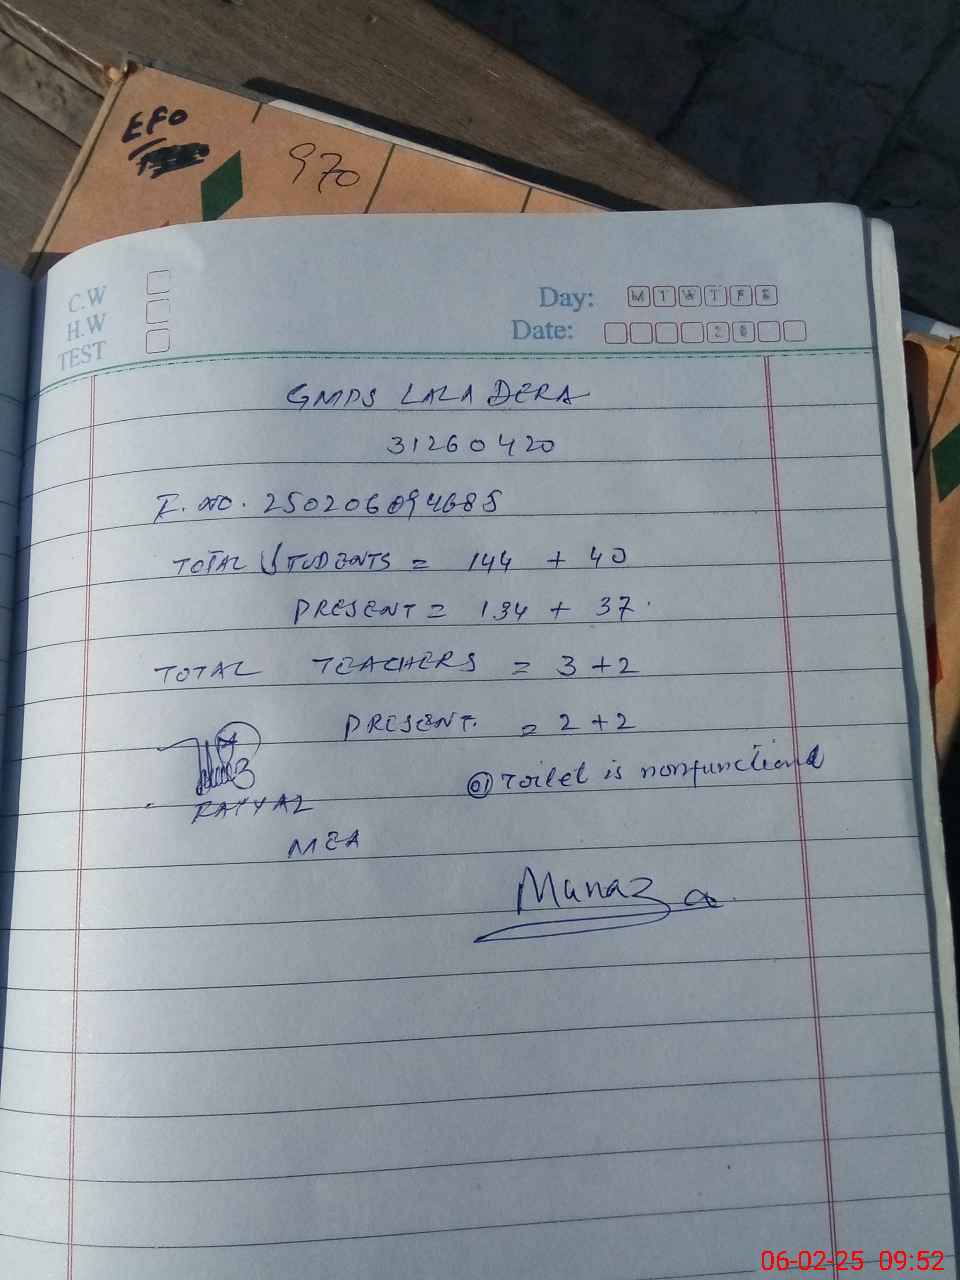 EFO
970
C.W
H.W
TEST
Day: M T W T F S
Date: 2 0
GMPS LALA DERA
31260420
I. NO. 250206094685
TOTAL STUDENTS = 144 + 40
PRESENT = 134 + 37.
TOTAL TEACHERS = 3 + 2
PRESENT. = 2 + 2
01 Toilet is nonfunctional
RAYYAL
MEA
Munaza
06-02-25 09:52